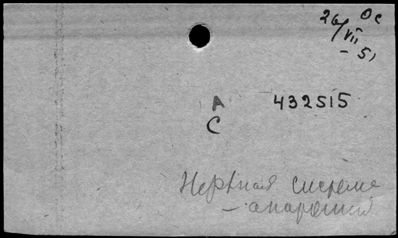 26/VII - 51 Ос
А 432515
С
Нервная система
- анатомия